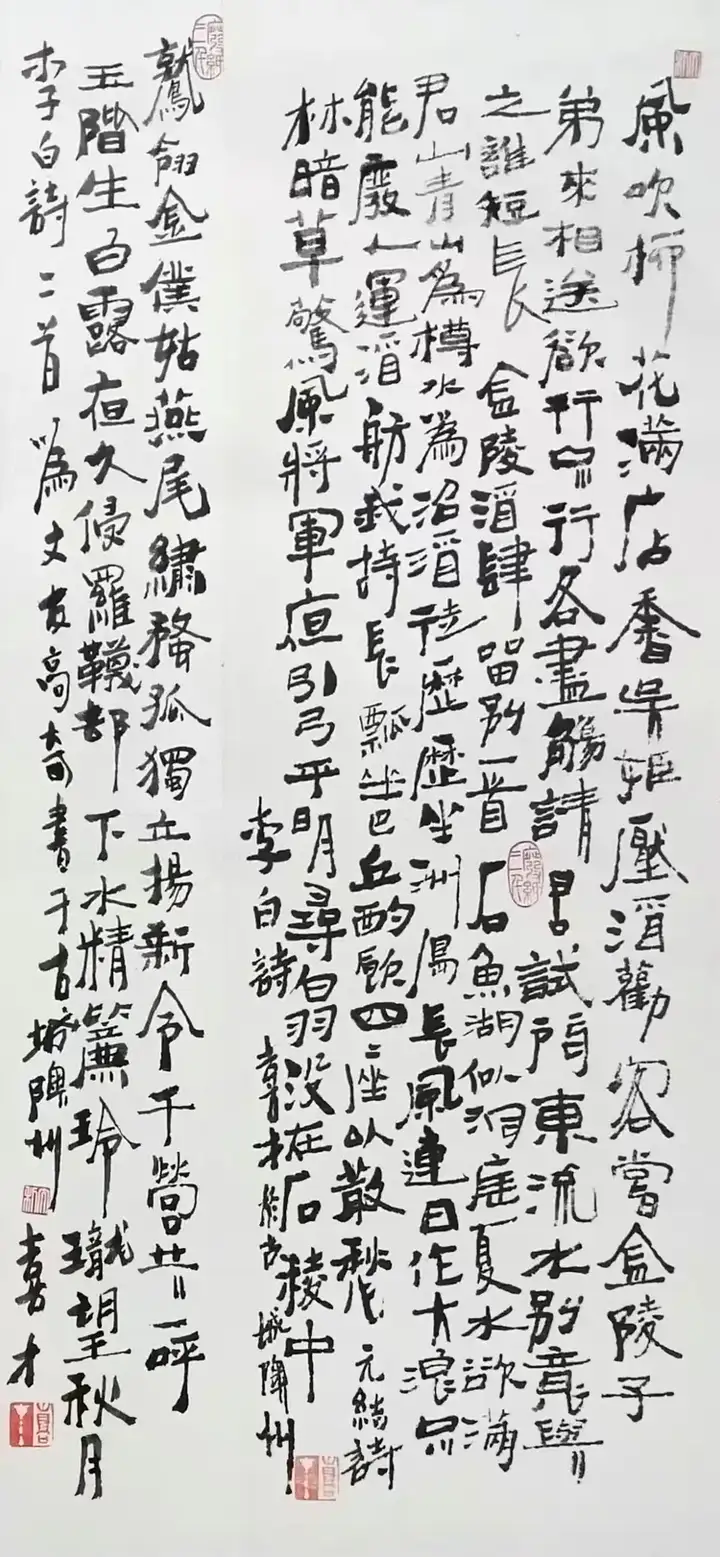 風吹柳花滿店香吳姬壓酒勸客嘗金陵子
弟來相送欲行不行各盡觴請君試問東流水別意與
之誰短長 金陵酒肆留別一首 石魚湖似洞庭夏水欲滿
君山青山為樽水為沼酒徒歷歷坐洲島長風連日作大浪不
能廢人運酒舫我持長瓢坐巴丘酌飲四座以散愁 元結詩
林暗草驚風將軍夜引弓平明尋白羽沒在石稜中
李白詩 喜才於古城陳州
鷲翎金僕姑燕尾繡蝥弧獨立揚新令千營共一呼
玉階生白露夜久侵羅襪却下水精簾玲瓏望秋月
李白詩二首為文友高奇書于古城陳州 喜才